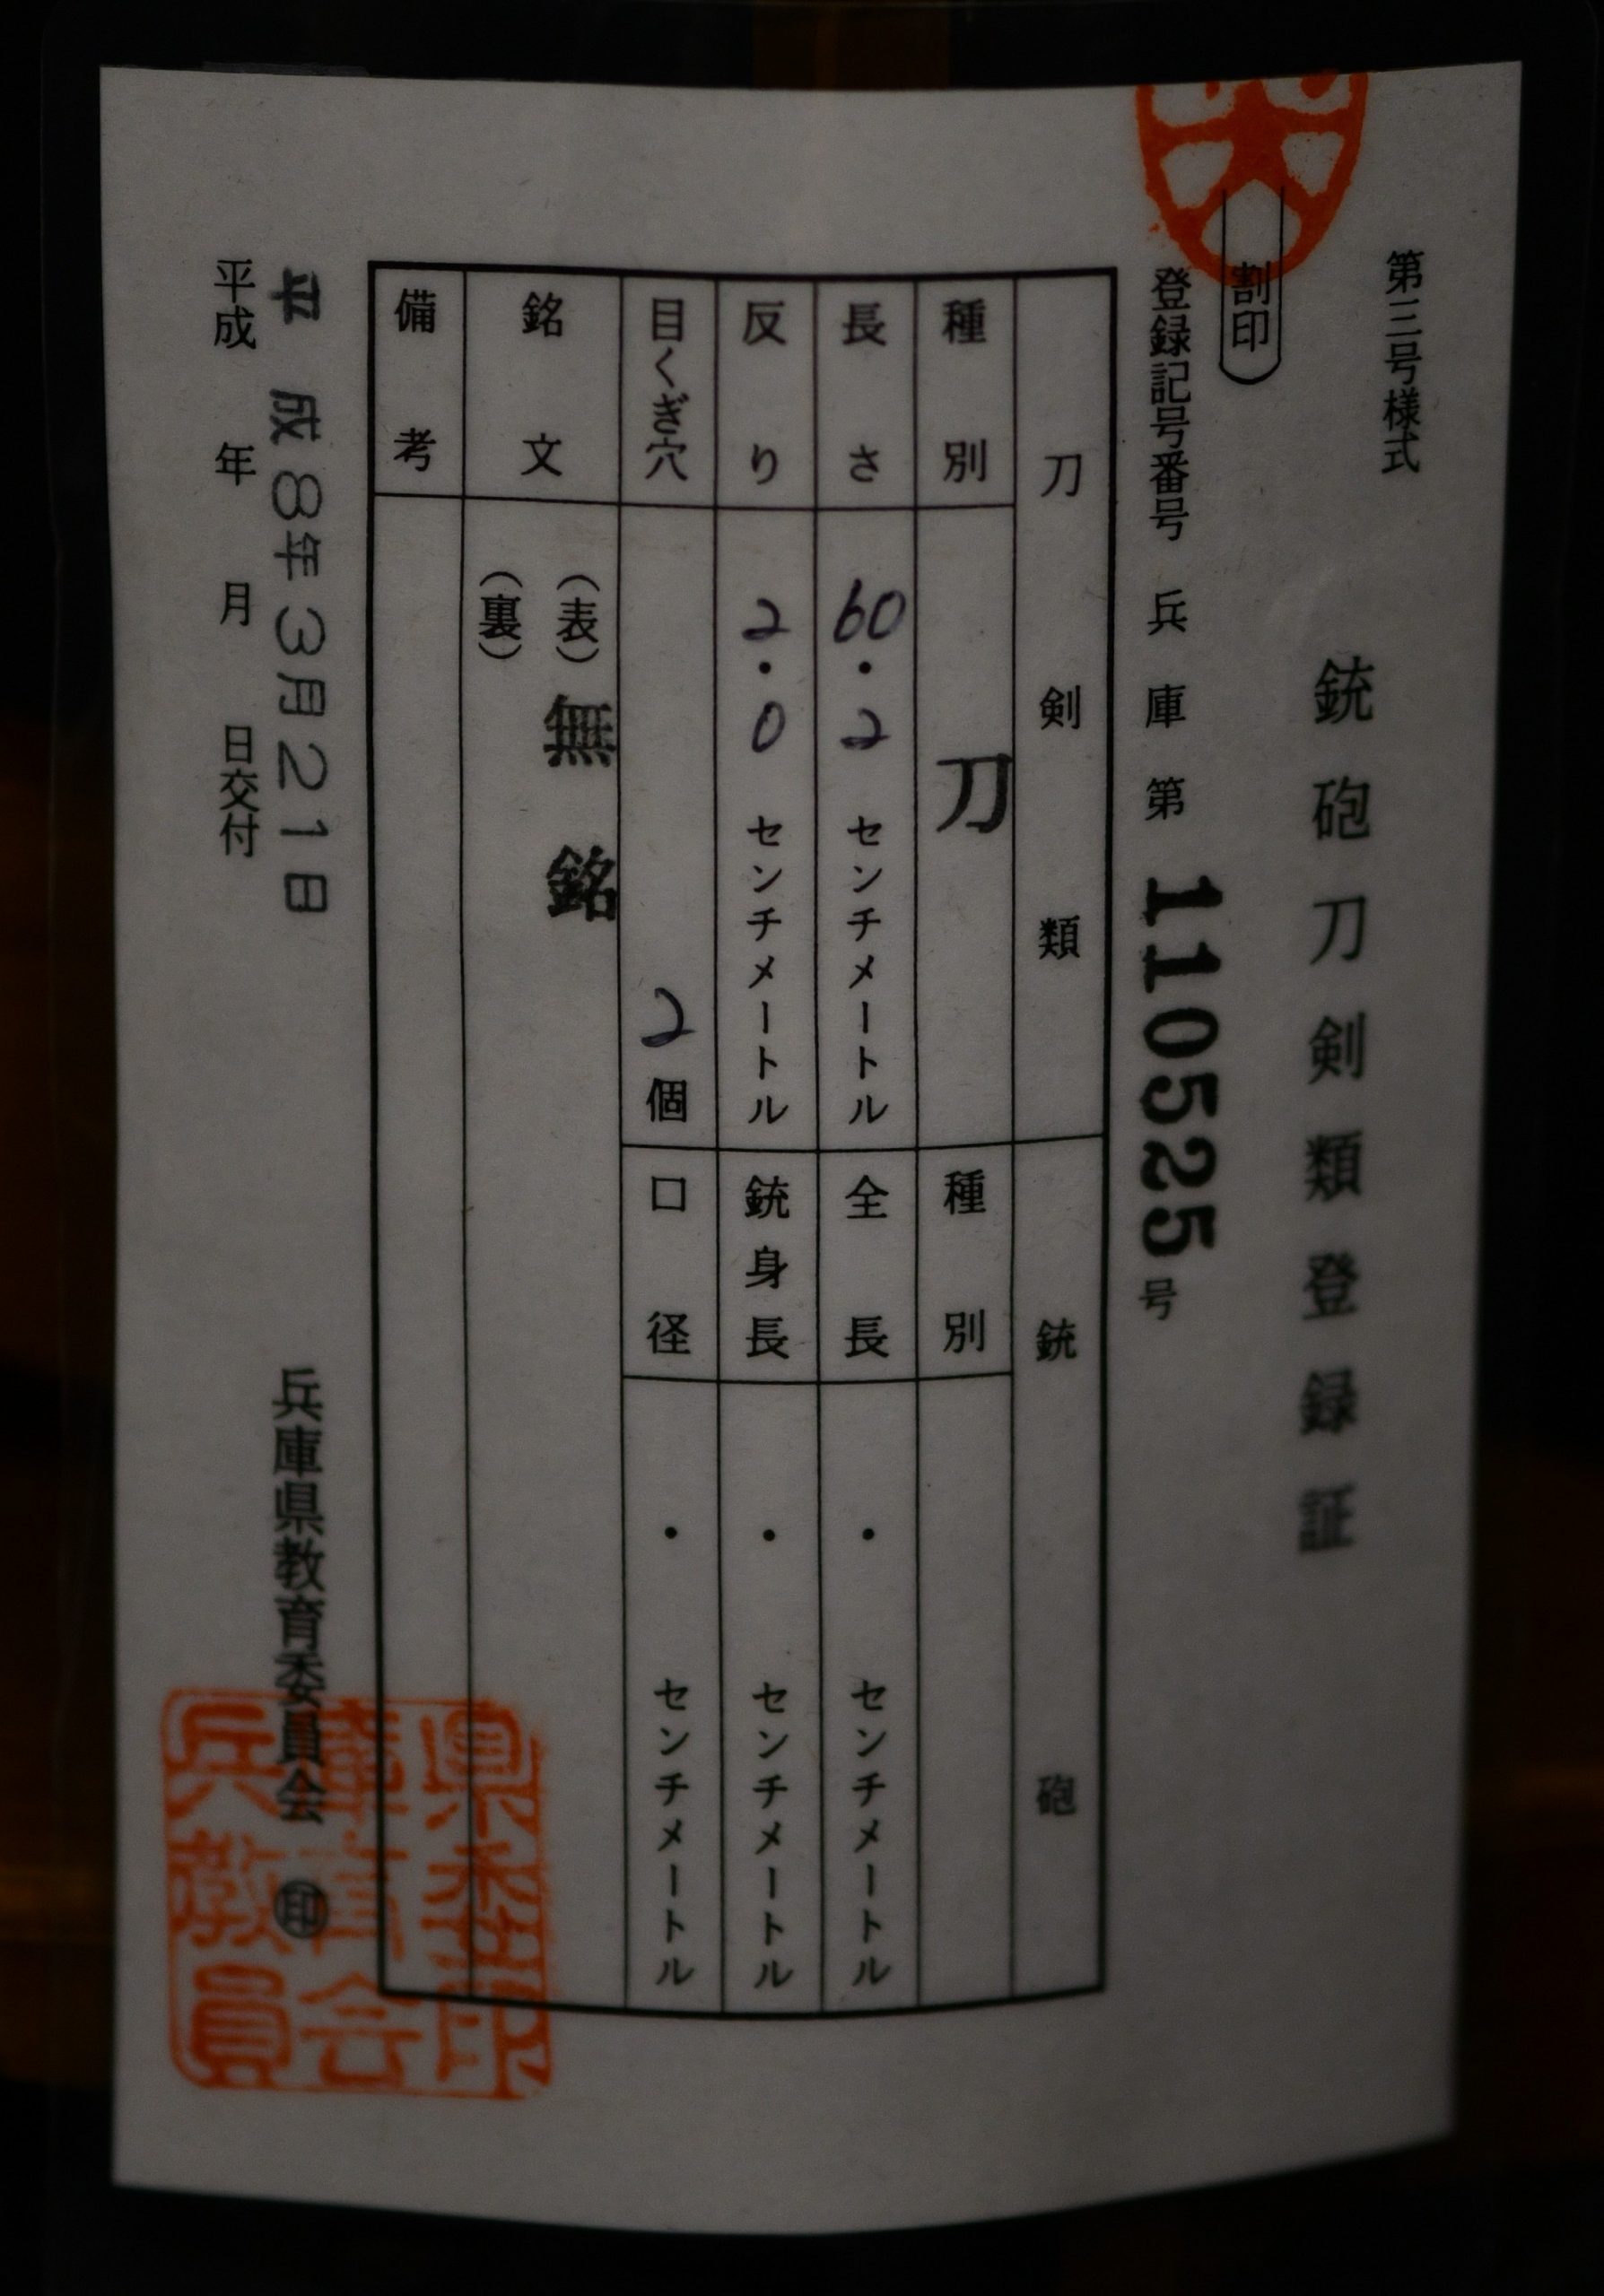 第三号様式
銃砲刀剣類登録証
割印
登録記号番号 兵庫第 110525 号
刀剣類 銃砲
種別 刀 種別
長さ 60・2 センチメートル 全長 ・ センチメートル
反り 2・0 センチメートル 銃身長 ・ センチメートル
目くぎ穴 2個 口径 ・ センチメートル
銘文 (表) 無銘
(裏)
備考
平成8年3月21日
兵庫県教育委員会 ㊞
平成 年 月 日交付
兵庫県
教育委
員会印